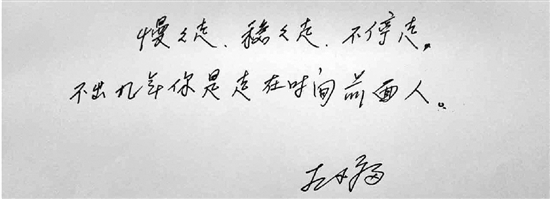 慢慢走、稳稳走、不停走。
不出几年你是走在时间前面人。